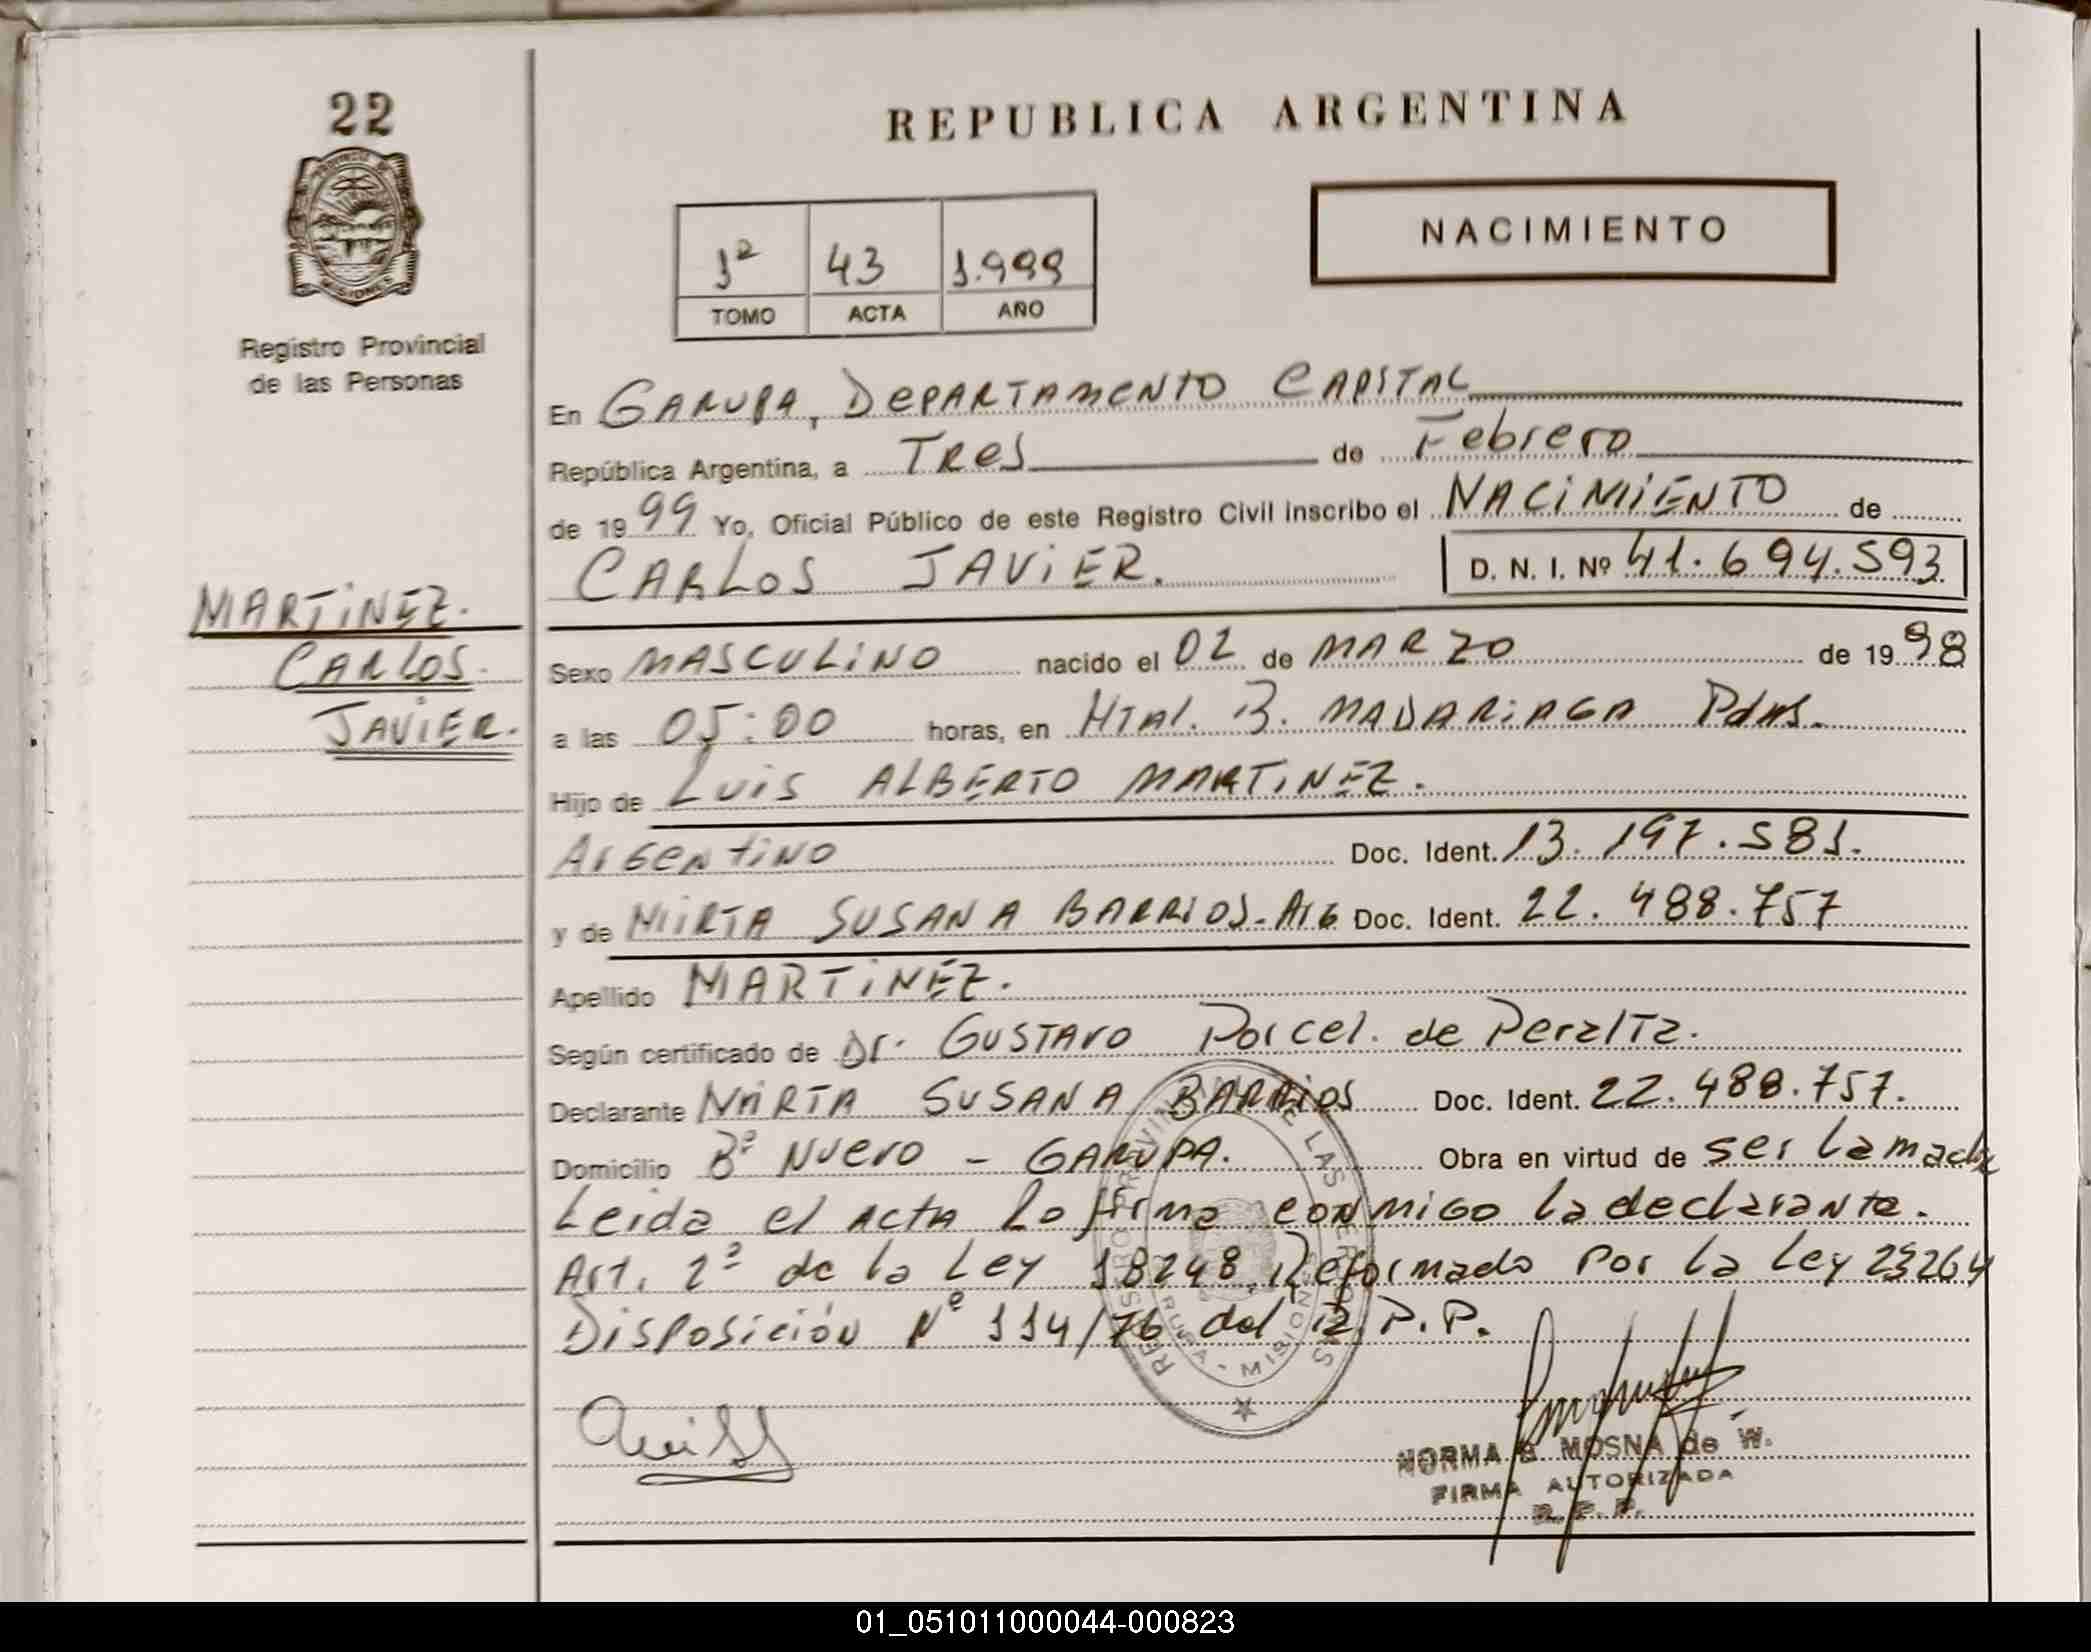 22
REPUBLICA ARGENTINA
NACIMIENTO
1º 43 1.999
TOMO ACTA AÑO
Registro Provincial
de las Personas
En GARUPA, DEPARTAMENTO CAPITAL
República Argentina, a TRES de Febrero
de 1999 Yo, Oficial Público de este Registro Civil inscribo el NACIMIENTO de
CARLOS JAVIER. D. N. I. Nº 41.694.593
MARTINEZ.
CARLOS.
JAVIER.
Sexo MASCULINO nacido el 02 de MARZO de 1998
a las 05:00 horas, en Htal. B. MADARIAGA Pdas.
Hijo de Luis ALBERTO MARTINEZ.
Argentino Doc. Ident. 13.197.581.
y de MIRTA SUSANA BARRIOS. Arg Doc. Ident. 22.488.757
Apellido MARTINEZ.
Según certificado de Dr. GUSTAVO Porcel. de Peralta.
Declarante MIRTA SUSANA BARRIOS Doc. Ident. 22.488.757.
Domicilio Bº Nuevo - GARUPA. Obra en virtud de ser la madre
Leida el acta la firma conmigo la declarante.
Art. 2º de la Ley 18248, Reformado por la Ley 23264
Disposición Nº 114/76 del R.P.P.
REGISTRO PROVINCIAL DE LAS PERSONAS
GARUPA - MISIONES
NORMA B. MOSNA de W.
FIRMA AUTORIZADA
R. P. P.
01_051011000044-000823